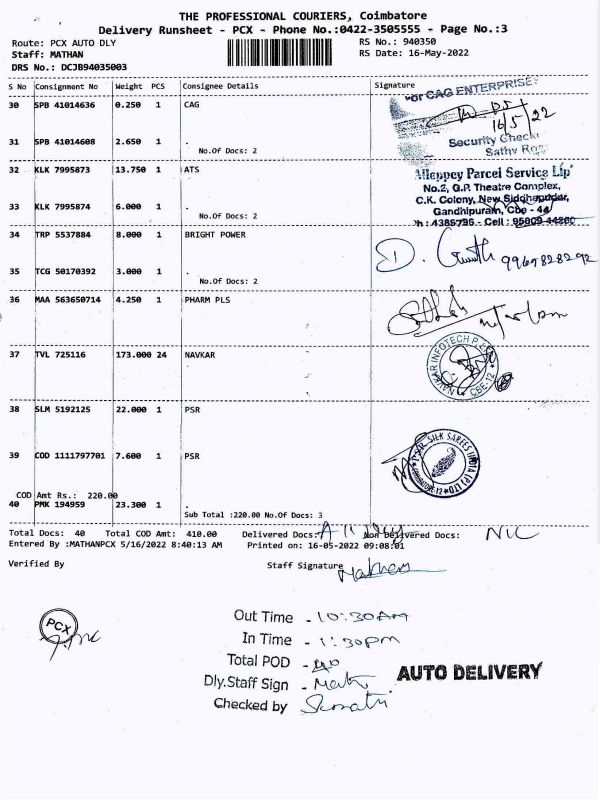 THE PROFESSIONAL COURIERS, Coimbatore
Delivery Runsheet - PCX - Phone No.:0422-3505555 - Page No.:3
Route: PCX AUTO DLY RS No.: 940350
Staff: MATHAN RS Date: 16-May-2022
DRS No.: DCJB94035003
S No Consignment No Weight PCS Consignee Details Signature
30 SPB 41014636 0.250 1 CAG
For CAG ENTERPRISE
16/5/22
31 SPB 41014608 2.650 1 .
No.Of Docs: 2
Security Check
32 KLK 7995873 13.750 1 ATS
Alleppey Parcel Service Llp
No.2, G.P. Theatre Complex,
C.K. Colony, New Siddhapudur,
33 KLK 7995874 6.000 1 .
No.Of Docs: 2
Gandhipuram, Cbe - 44
34 TRP 5537884 8.000 1 BRIGHT POWER
35 TCG 50170392 3.000 1 .
No.Of Docs: 2
36 MAA 563650714 4.250 1 PHARM PLS
37 TVL 725116 173.000 24 NAVKAR
NAVKAR INFOTECH P LTD
CBE-12
38 SLM 5192125 22.000 1 PSR
39 COD 1111797701 7.600 1 PSR
SILK SAREES INDIA (P) LTD
COD Amt Rs.: 220.00
40 PMK 194959 23.300 1 .
Sub Total :220.00 No.Of Docs: 3
Total Docs: 40 Total COD Amt: 410.00 Delivered Docs: All Dly Non Delivered Docs: NIL
Entered By :MATHANPCX 5/16/2022 8:40:13 AM Printed on: 16-05-2022 09:08:01
Verified By Staff Signature Mathan
PCX
Out Time - 10:30AM
In Time - 1:30pm
Total POD - 40
Dly.Staff Sign -
AUTO DELIVERY
Checked by